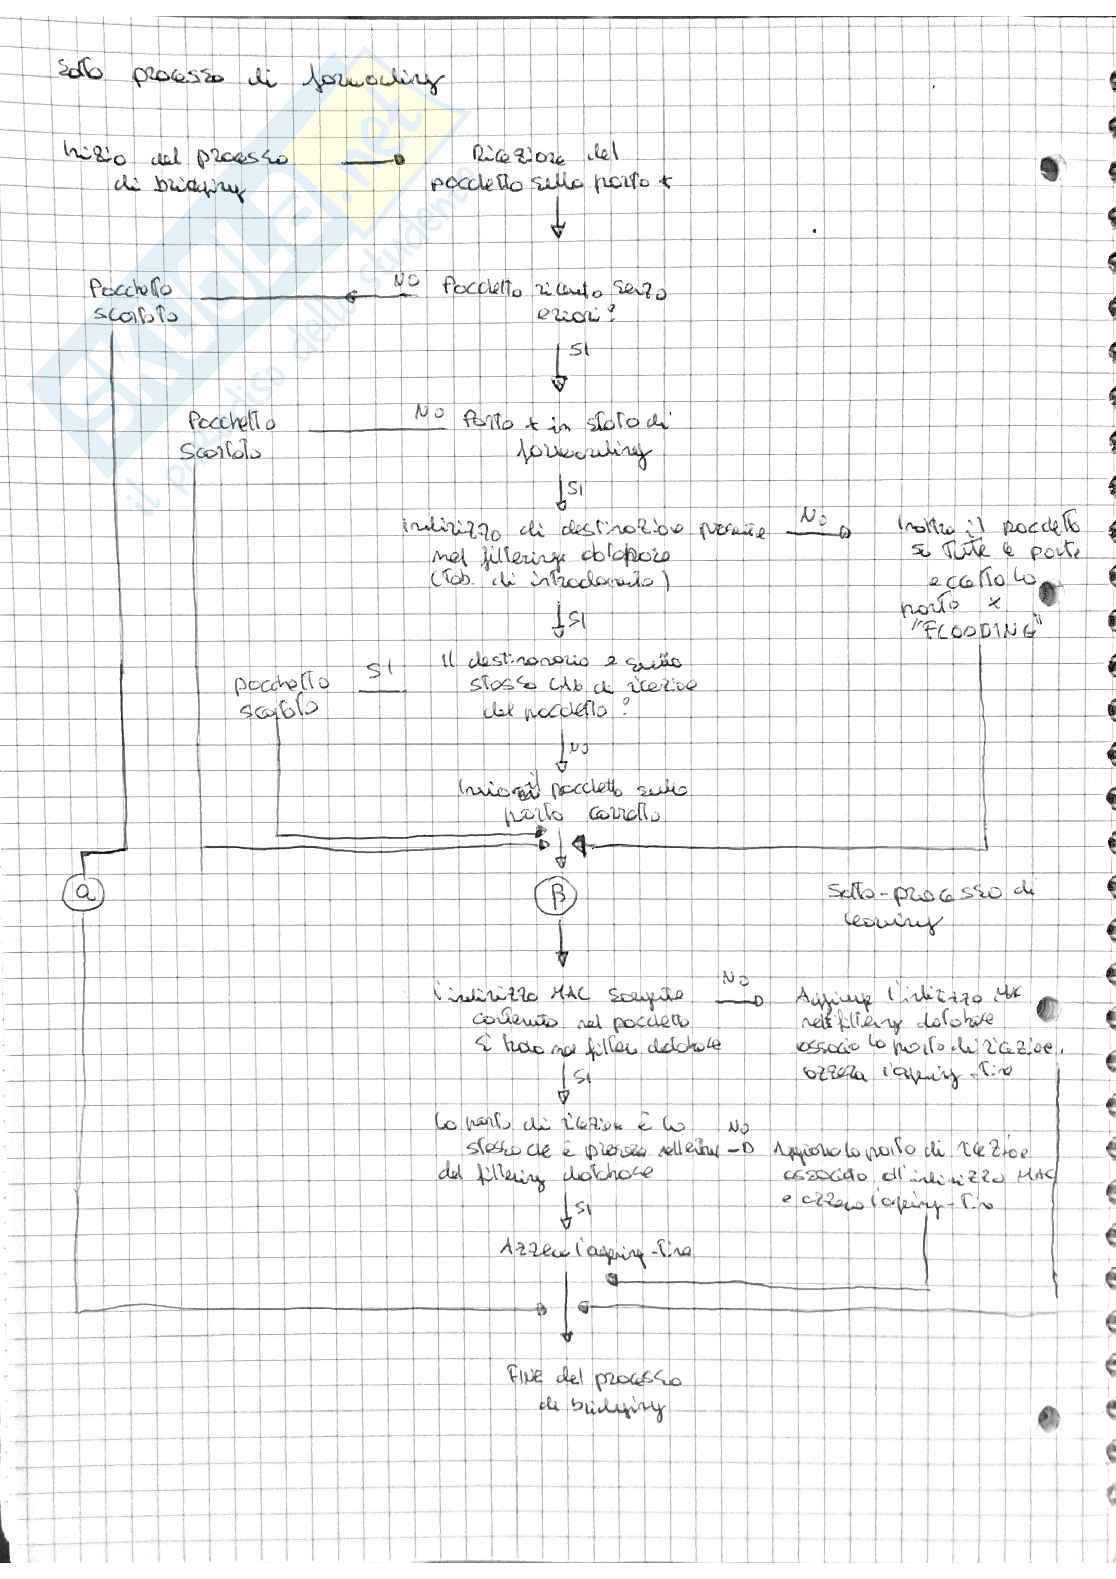 Sotto processo di forwarding
Inizio del processo
di bridging
Ricezione del
pacchetto sulla porta x
Pacchetto
scartato
NO
Pacchetto ricevuto senza
errori?
SI
Pacchetto
scartato
NO
Porta x in stato di
forwarding
SI
indirizzo di destinazione presente
nel filtering database
(Tab. di instradamento)
NO
Inoltra il pacchetto
su tutte le porte
eccetto la
porta x
"FLOODING"
SI
Il destinatario è sulla
stessa LAN di ricezione
del pacchetto?
SI
pacchetto
scartato
NO
Invia il pacchetto sulla
porta corretta
a
β
Sotto-processo di
learning
l'indirizzo MAC sorgente
contenuto nel pacchetto
si trova nel filter database
NO
Aggiunge l'indirizzo MAC
nel filtering database
associa la porta di ricezione,
azzera l'ageing-Time
SI
La porta di ricezione è la
stessa che è presente nell'entry
del filtering database
NO
Aggiorna la porta di ricezione
associata all'indirizzo MAC
e azzera l'ageing-Time
SI
Azzera l'ageing-Time
FINE del processo
di bridging
skuola.net
il paradiso dello studente